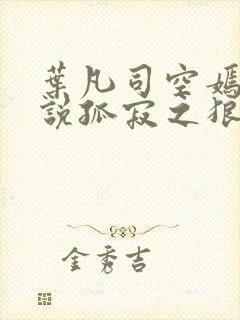 葉凡司空嫣
說孤寂之狼
金秀吉